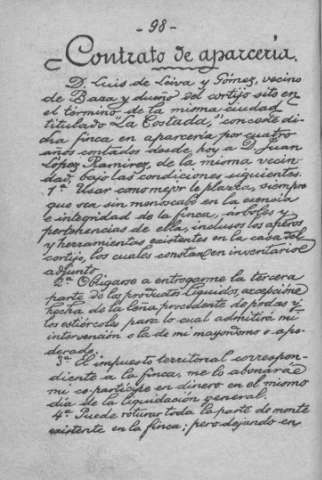 - 98 -
Contrato de aparcería.
D. Luis de Leiva y Gómez, vecino
de Baza y dueño del cortijo sito en
el término de la misma ciudad,
titulado "La Costada," concede di-
cha finca en aparcería por cuatro
años contados desde hoy a D. Juan
López Ramírez, de la misma vecin-
dad, bajo las condiciones siguientes.
1ª Usar como mejor le plazca, siempre
que sea sin menoscabo en la esencia
e integridad de la finca, árboles y
pertenencias de ella, inclusos los aperos
y herramientas existentes en la casa del
cortijo, los cuales constan en inventario
adjunto.
2ª Obligarse a entregarme la tercera
parte de los productos líquidos, excepción
hecha de la leña procedente de podas y
los estiércoles para lo cual admitirá mi
intervención o la de mi mayordomo o apo-
derado.
3ª El impuesto territorial correspon-
diente a la finca, me lo abonará
mi co-partícipe en dinero en el mismo
día de la liquidación general.
4ª Puede roturar toda la parte de monte
existente en la finca; pero dejando en